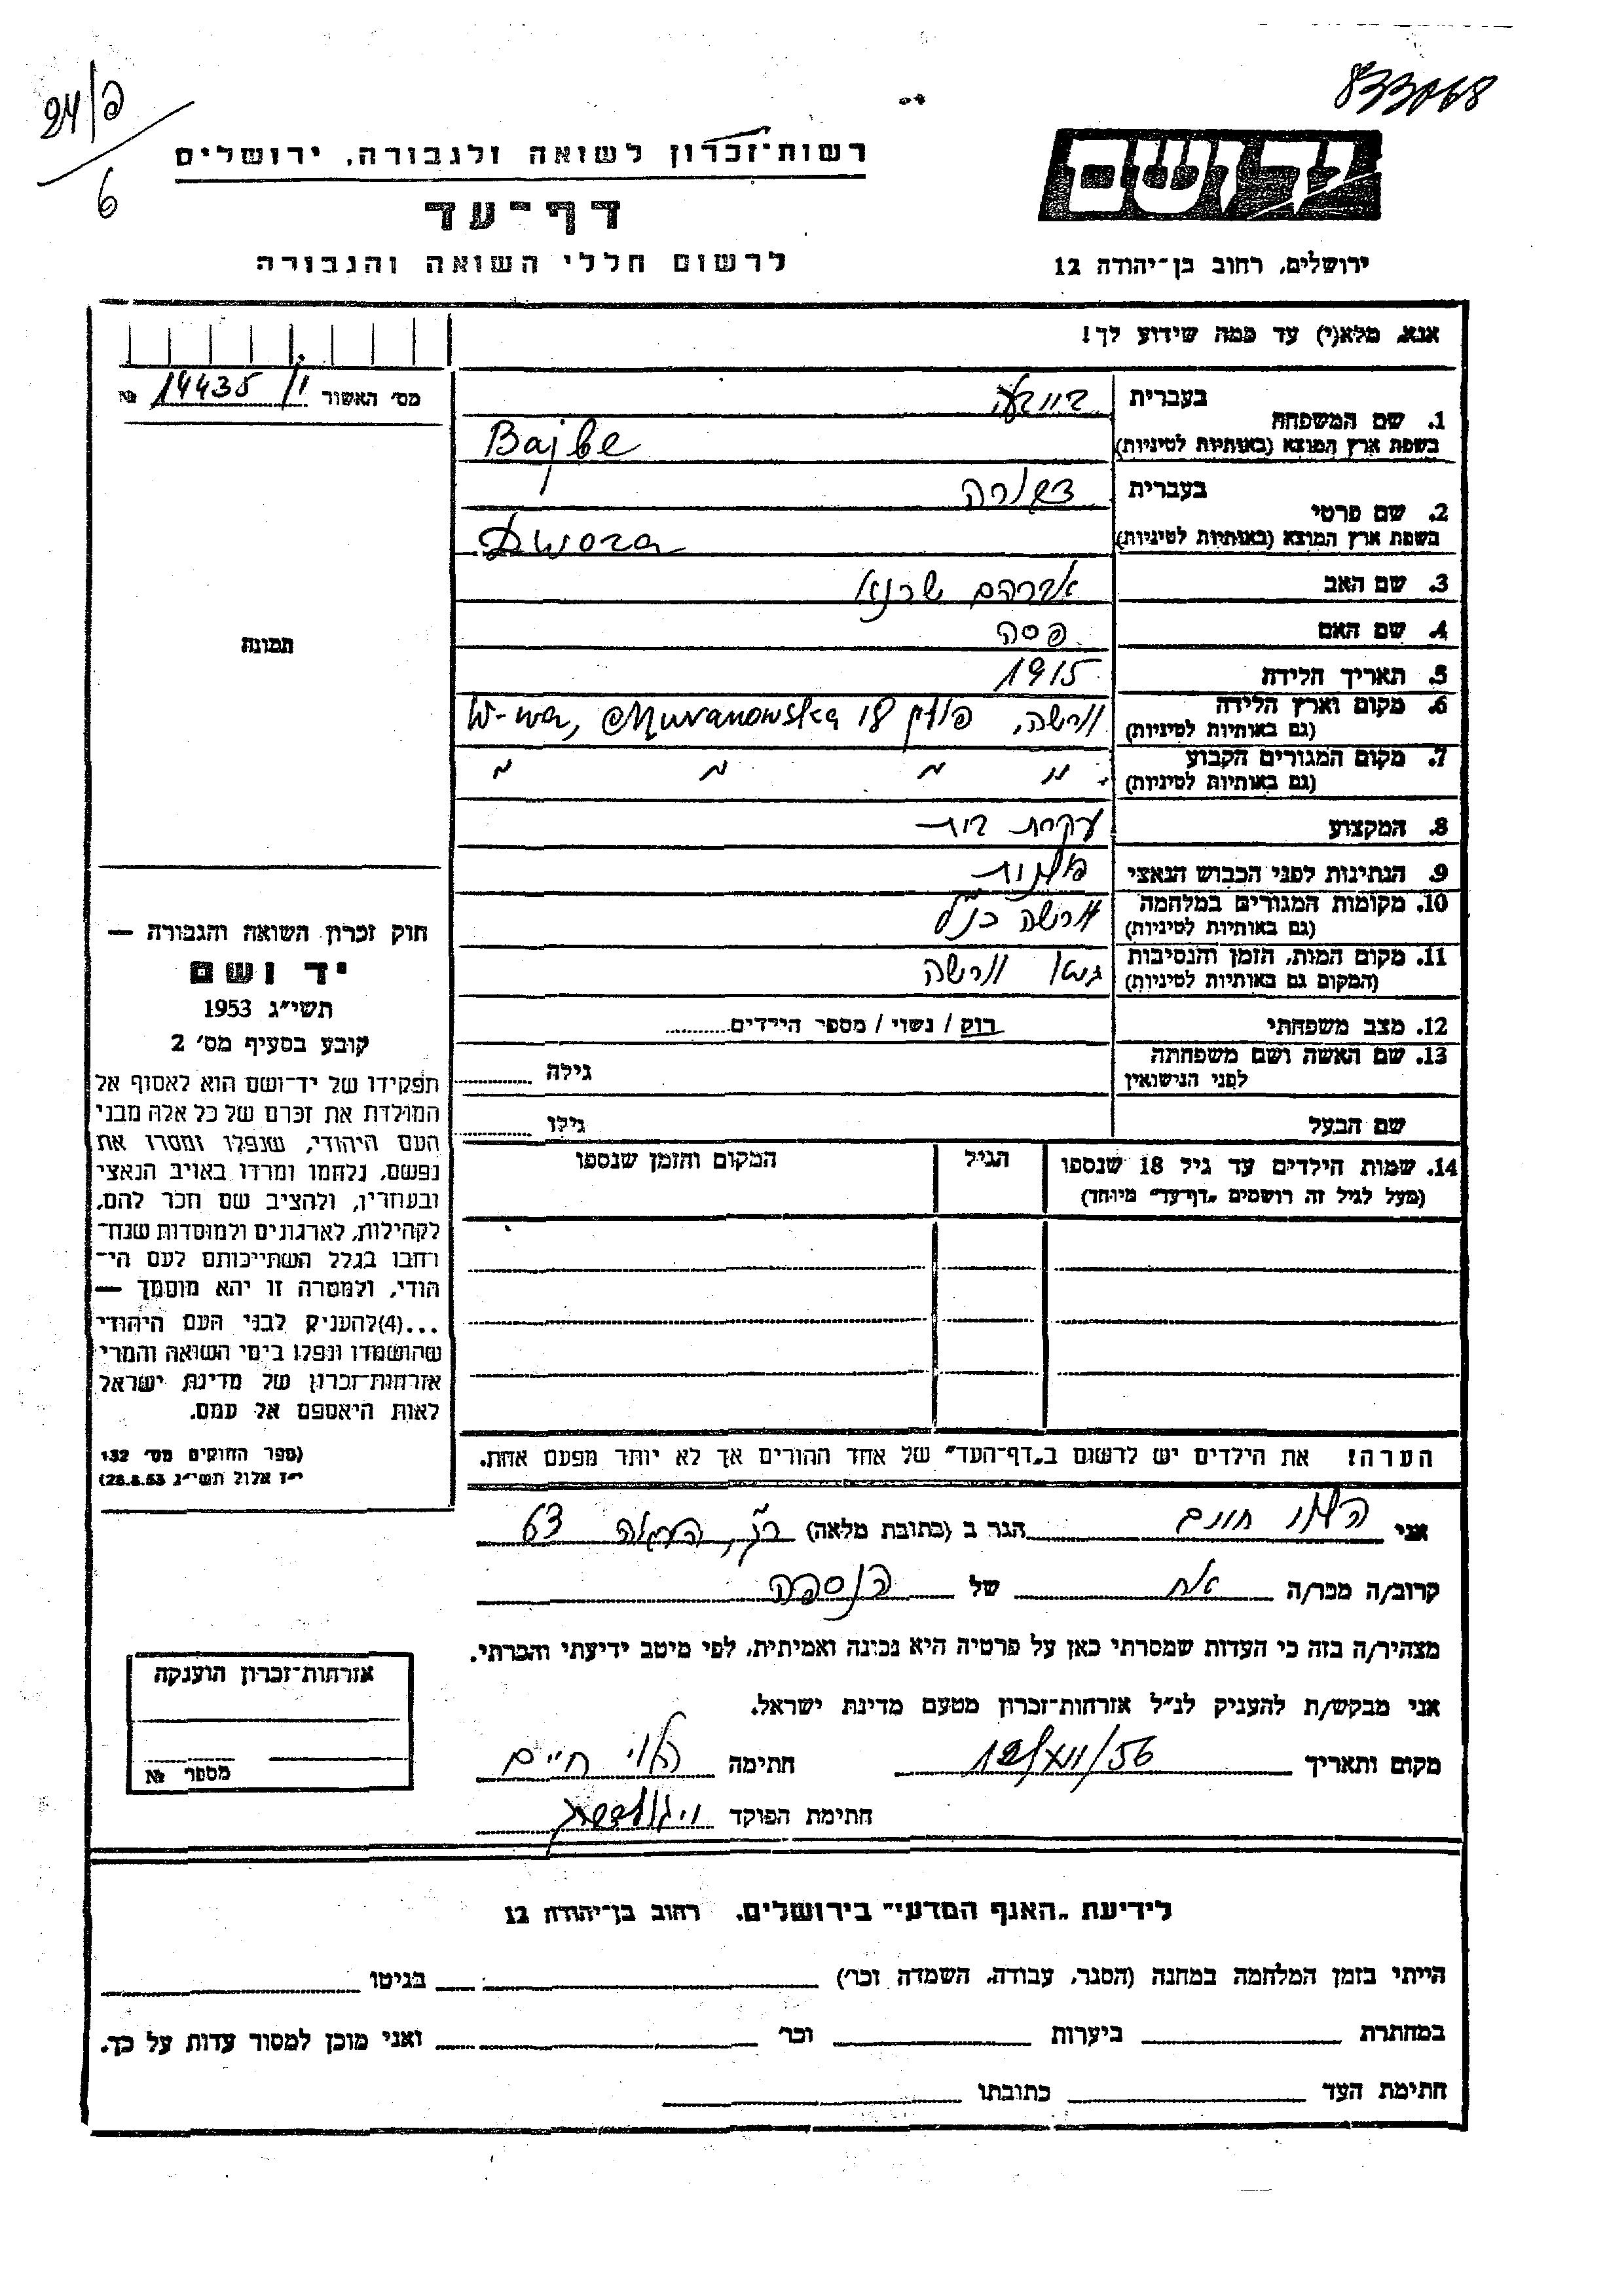 833068
24/פ
6
רשות־זכרון לשואה ולגבורה, ירושלים
דף־עד
לרשום חללי השואה והגבורה
יד ושם
ירושלים, רחוב בן־יהודה 12
אנא, מלא(י) עד כמה שידוע לך!
מס׳ האשור 14435 /י №
1. שם המשפחה
בעברית
בשפת ארץ המוצא (באותיות לטיניות)
Bajbe
2. שם פרטי
בעברית דבורה
בשפת ארץ המוצא (באותיות לטיניות)
Dwora
3. שם האב אברהם
4. שם האם פסה
5. תאריך הלידה 1915
6. מקום וארץ הלידה
(גם באותיות לטיניות)
וורשה, פולין W-wa, Muranowska 18
7. מקום המגורים הקבוע
(גם באותיות לטיניות)
״ ״ ״ ״
8. המקצוע עקרת בית
9. הנתינות לפני הכבוש הנאצי פולנית
10. מקומות המגורים במלחמה
(גם באותיות לטיניות)
וורשה כנ״ל
11. מקום המות, הזמן והנסיבות
(המקום גם באותיות לטיניות)
גטו וורשה
12. מצב משפחתי רוק / נשוי / מספר הילדים
13. שם האשה ושם משפחתה
לפני הנישואין
גילה
שם הבעל
גילו
14. שמות הילדים עד גיל 18 שנספו
(מעל לגיל זה רושמים „דף־עד״ מיוחד)
הגיל
המקום והזמן שנספו
תמונה
חוק זכרון השואה והגבורה —
יד ושם
תשי״ג 1953
קובע בסעיף מס׳ 2
תפקידו של יד־ושם הוא לאסוף אל
המולדת את זכרם של כל אלה מבני
העם היהודי, שנפלו ומסרו את
נפשם, נלחמו ומרדו באויב הנאצי
ובעוזריו, ולהציב שם וזכר להם,
לקהילות, לארגונים ולמוסדות שנח־
רבו בגלל השתייכותם לעם הי־
הודי, ולמטרה זו יהא מוסמך —
...(4)להעניק לבני העם היהודי
שהושמדו ונפלו בימי השואה והמרי
אזרחות־זכרון של מדינת ישראל
לאות היאספם אל עמם.
(ספר החוקים מס׳ 132
י״ז אלול תשי״ג 28.8.53)
הערה! את הילדים יש לרשום ב„דף־העד״ של אחד ההורים אך לא יותר מפעם אחת.
אני הלוי חיים הגר ב (כתובת מלאה) 63
קרוב/ה מכר/ה אח של הנספה
מצהיר/ה בזה כי העדות שמסרתי כאן על פרטיה היא נכונה ואמיתית, לפי מיטב ידיעתי והכרתי.
אני מבקש/ת להעניק לנ״ל אזרחות־זכרון מטעם מדינת ישראל.
מקום ותאריך חתימה הלוי חיים
חתימת הפוקד
אזרחות־זכרון הוענקה
מספר №
לידיעת „האגף המדעי״ בירושלים, רחוב בן־יהודה 12
הייתי בזמן המלחמה במחנה (הסגר, עבודה, השמדה וכו׳) בגיטו
במחתרת ביערות וכו׳ ואני מוכן למסור עדות על כך.
חתימת העד כתובתו